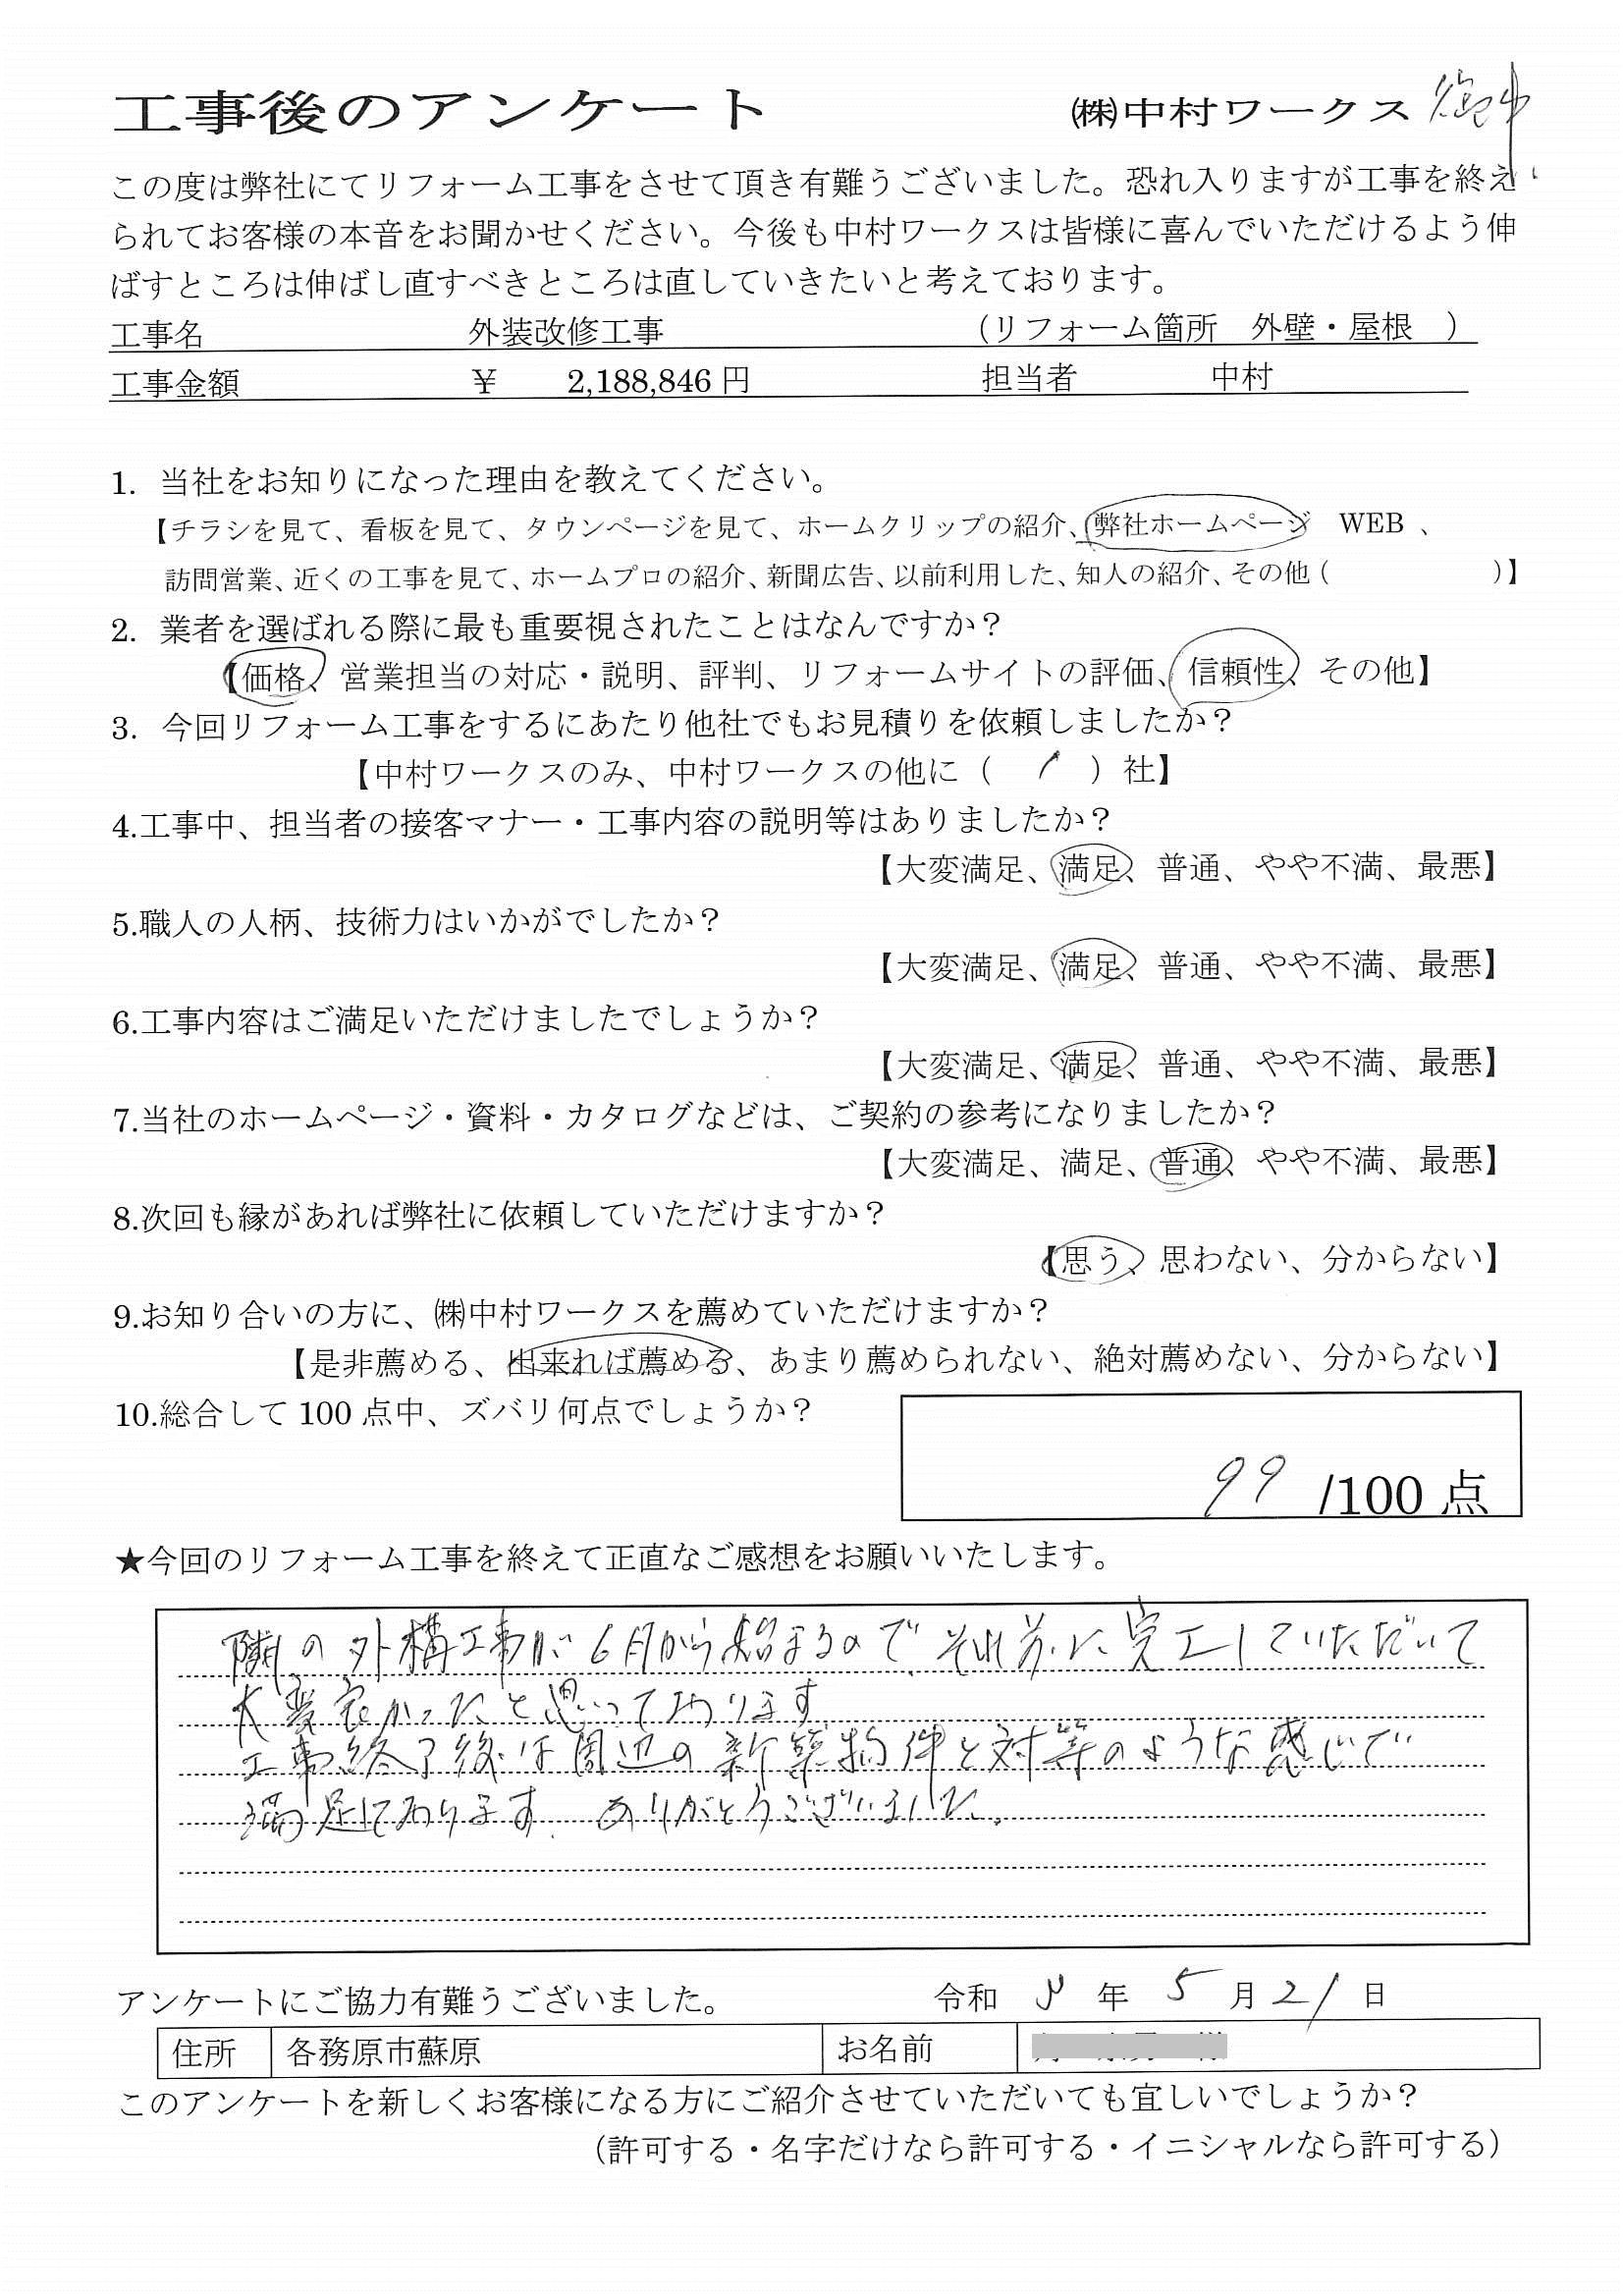 工事後のアンケート ㈱中村ワークス 御中
この度は弊社にてリフォーム工事をさせて頂き有難うございました。恐れ入りますが工事を終え
られてお客様の本音をお聞かせください。今後も中村ワークスは皆様に喜んでいただけるよう伸
ばすところは伸ばし直すべきところは直していきたいと考えております。
工事名 外装改修工事 （リフォーム箇所 外壁・屋根 ）
工事金額 ￥ 2,188,846 円 担当者 中村
1. 当社をお知りになった理由を教えてください。
【チラシを見て、看板を見て、タウンページを見て、ホームクリップの紹介、弊社ホームページ WEB 、
訪問営業、近くの工事を見て、ホームプロの紹介、新聞広告、以前利用した、知人の紹介、その他（ ）】
2. 業者を選ばれる際に最も重要視されたことはなんですか？
【価格、営業担当の対応・説明、評判、リフォームサイトの評価、信頼性、その他】
3. 今回リフォーム工事をするにあたり他社でもお見積りを依頼しましたか？
【中村ワークスのみ、中村ワークスの他に（ 1 ）社】
4.工事中、担当者の接客マナー・工事内容の説明等はありましたか？
【大変満足、満足、普通、やや不満、最悪】
5.職人の人柄、技術力はいかがでしたか？
【大変満足、満足、普通、やや不満、最悪】
6.工事内容はご満足いただけましたでしょうか？
【大変満足、満足、普通、やや不満、最悪】
7.当社のホームページ・資料・カタログなどは、ご契約の参考になりましたか？
【大変満足、満足、普通、やや不満、最悪】
8.次回も縁があれば弊社に依頼していただけますか？
【思う、思わない、分からない】
9.お知り合いの方に、㈱中村ワークスを薦めていただけますか？
【是非薦める、出来れば薦める、あまり薦められない、絶対薦めない、分からない】
10.総合して 100 点中、ズバリ何点でしょうか？
99 /100 点
★今回のリフォーム工事を終えて正直なご感想をお願いいたします。
隣の外構工事が6月から始まるので、それ前に完工していただいて
大変良かったと思っております
工事終了後は周辺の新築物件と対等のような感じで
満足しております。ありがとうございました。
アンケートにご協力有難うございました。 令和 年 5 月 21 日
住所 各務原市蘇原 お名前
このアンケートを新しくお客様になる方にご紹介させていただいても宜しいでしょうか？
（許可する・名字だけなら許可する・イニシャルなら許可する）